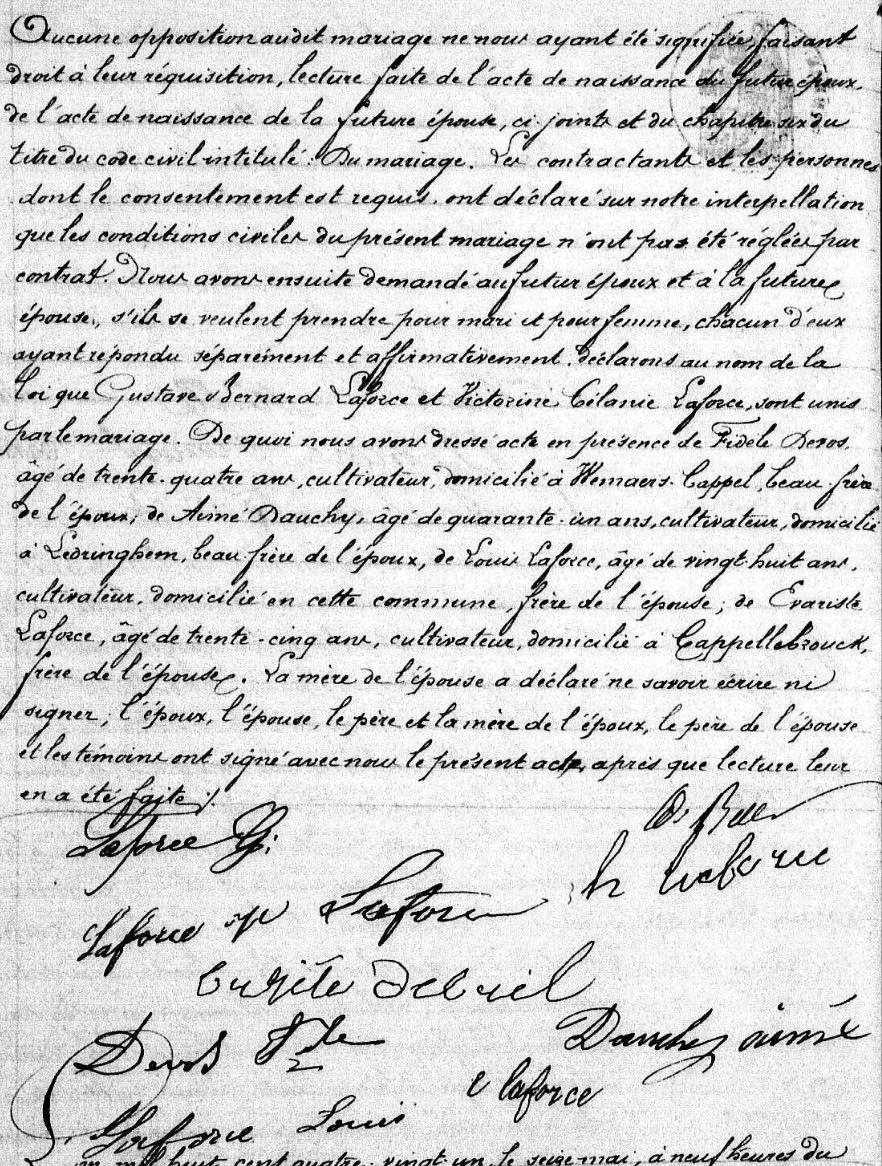 Aucune opposition audit mariage ne nous ayant été signifiée, faisant
droit à leur réquisition, lecture faite de l'acte de naissance du futur époux,
de l'acte de naissance de la future épouse, ci-joints et du chapitre six du
titre du code civil intitulé : Du mariage. Les contractants et les personnes
dont le consentement est requis, ont déclaré sur notre interpellation
que les conditions civiles du présent mariage n'ont pas été réglées par
contrat. Nous avons ensuite demandé au futur époux et à la future
épouse, s'ils se veulent prendre pour mari et pour femme, chacun d'eux
ayant répondu séparément et affirmativement, déclarons au nom de la
loi que Gustave Bernard Laforce et Victorine Célanie Laforce, sont unis
par le mariage. De quoi nous avons dressé acte en présence de Fidèle Devos,
âgé de trente-quatre ans, cultivateur, domicilié à Wemaers-Cappel, beau-frère
de l'époux; de Aimé Dauchy, âgé de quarante-un ans, cultivateur, domicilié
à Ledringhem, beau-frère de l'époux, de Louis Laforce, âgé de vingt-huit ans,
cultivateur, domicilié en cette commune, frère de l'épouse; de Evariste
Laforce, âgé de trente-cinq ans, cultivateur, domicilié à Cappellebrouck,
frère de l'épouse. La mère de l'épouse a déclaré ne savoir écrire ni
signer; l'époux, l'épouse, le père et la mère de l'époux, le père de l'épouse
et les témoins ont signé avec nous le présent acte, après que lecture leur
en a été faite ./.
Laforce
h Laforce
Laforce Laforce
Debril
Devos Dauchy aimé
e laforce
Laforce Louis
an mil huit cent quatre-vingt-un, le seize mai, à neuf heures du